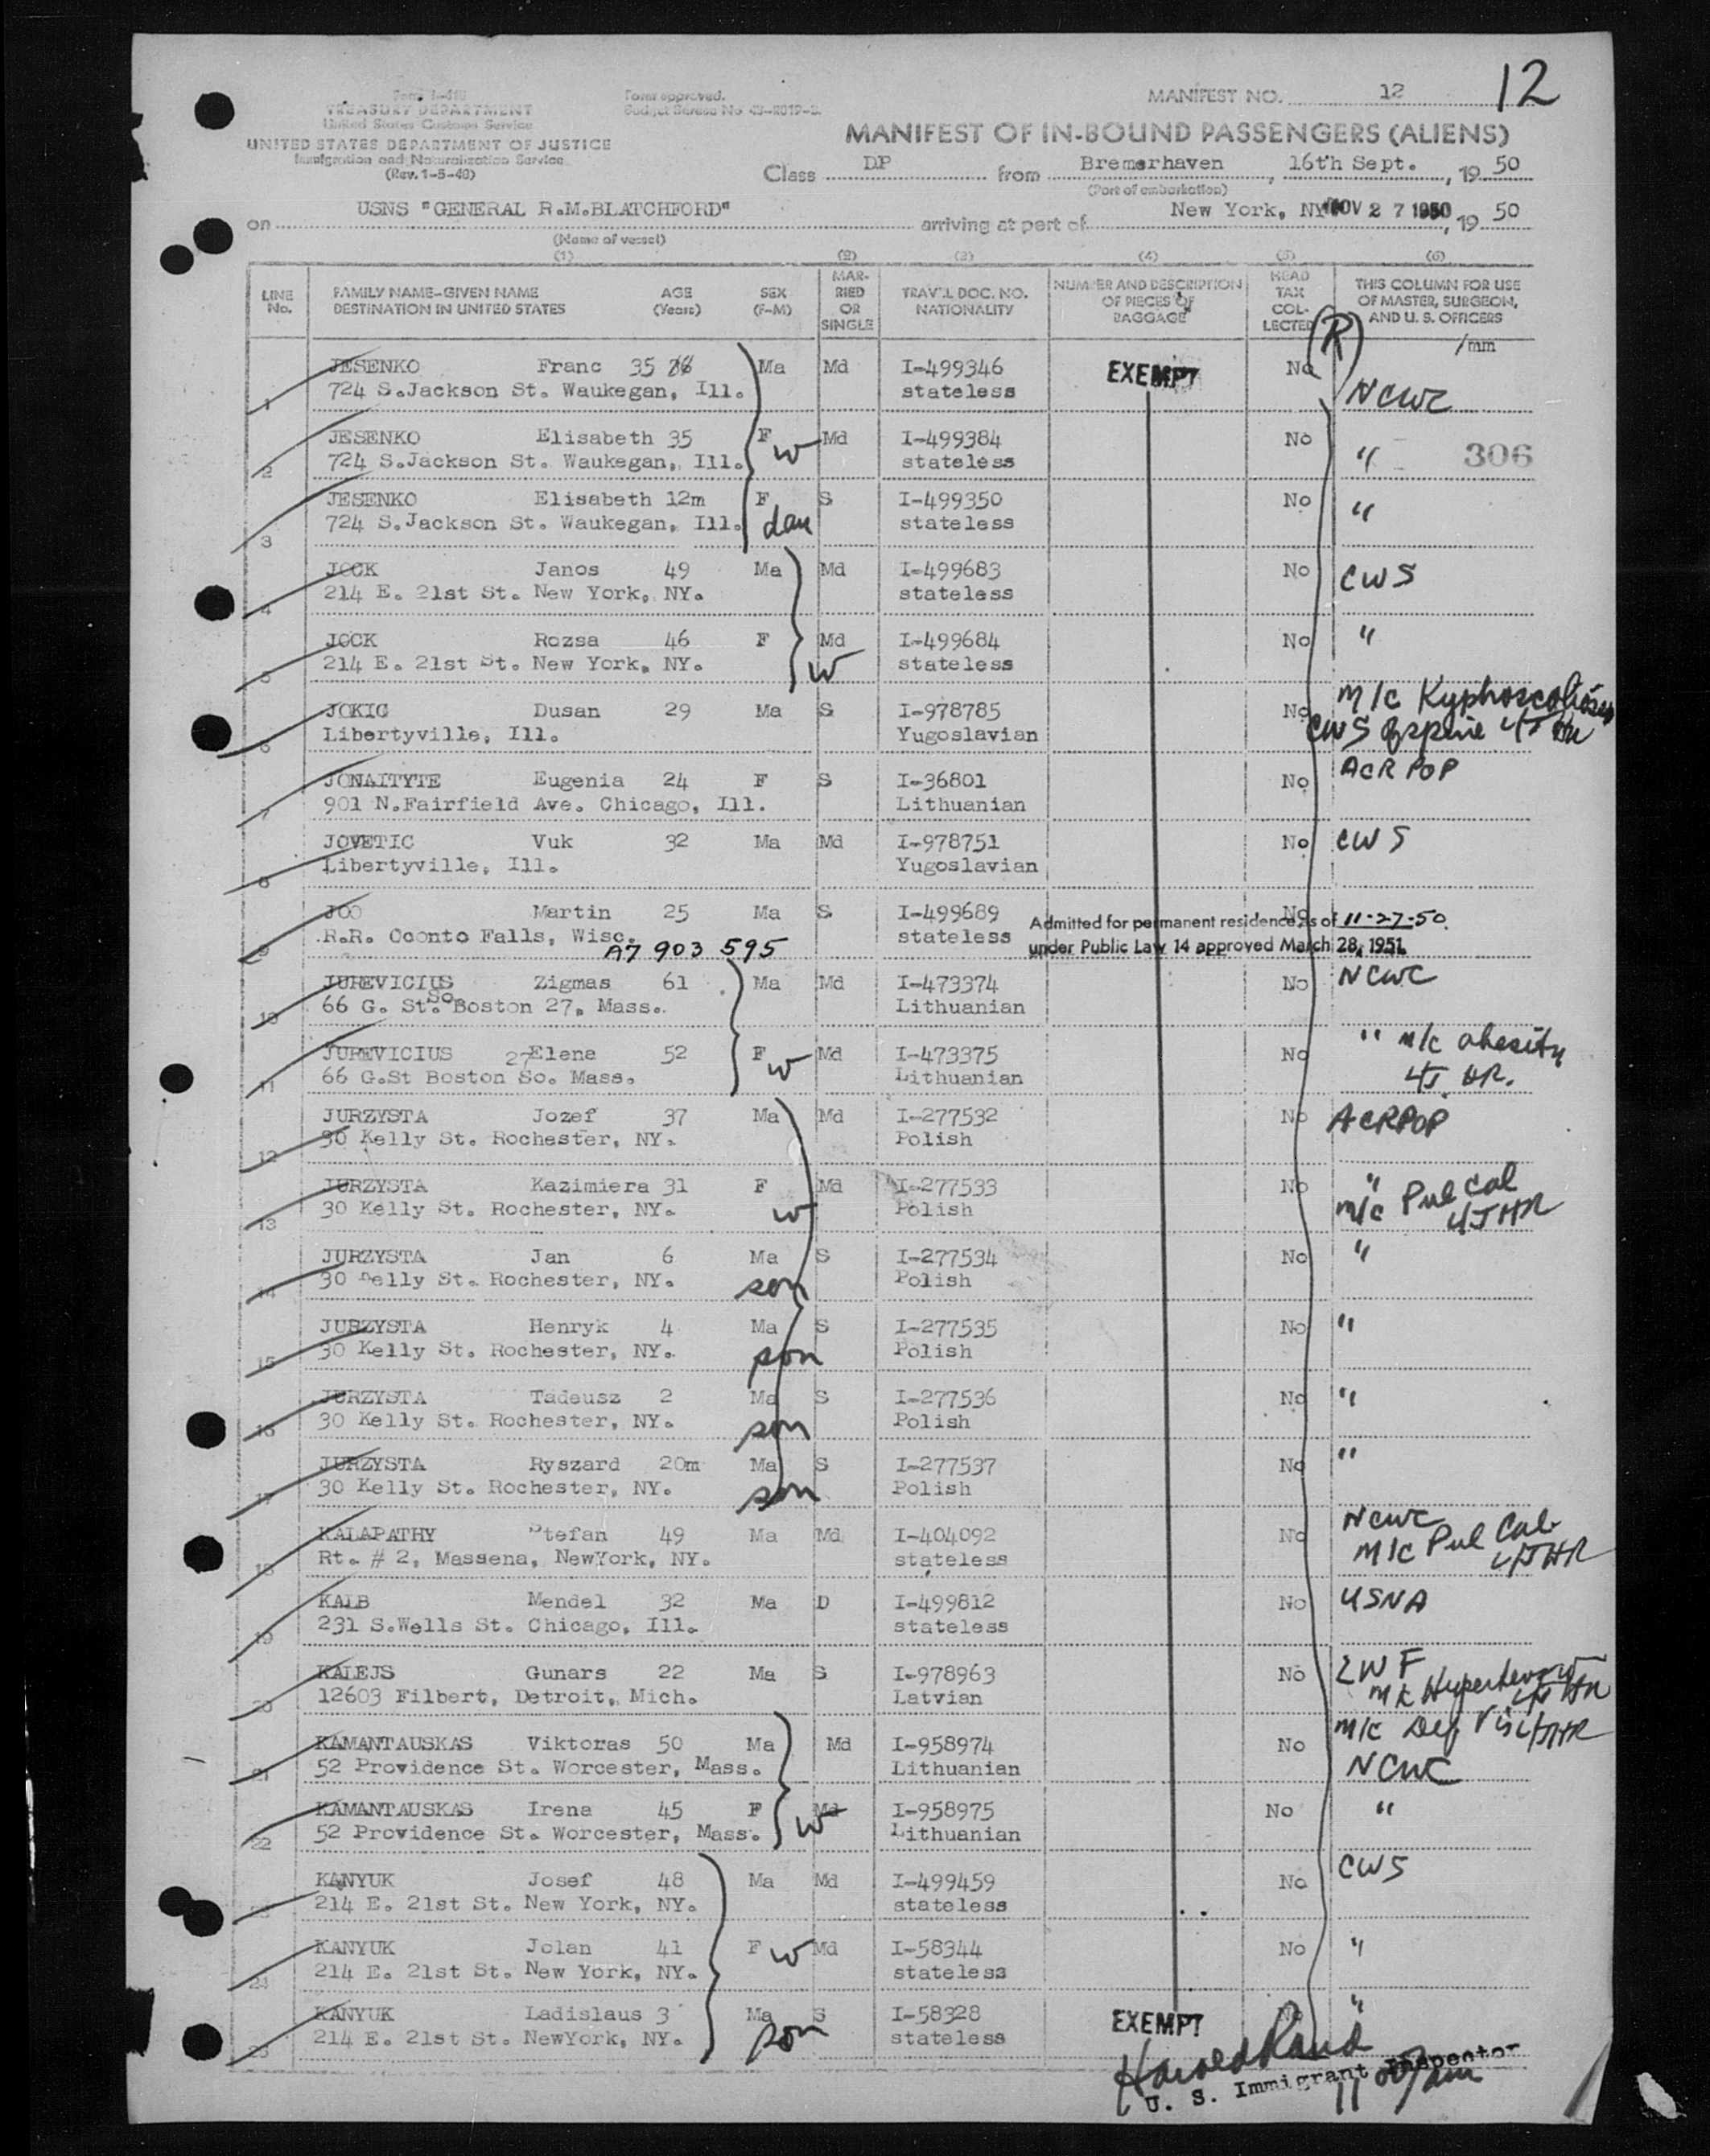 12
Form I-418
TREASURY DEPARTMENT
United States Customs Service
UNITED STATES DEPARTMENT OF JUSTICE
Immigration and Naturalization Service
(Rev. 1-5-49)
Form approved.
MANIFEST NO. 12
MANIFEST OF IN-BOUND PASSENGERS (ALIENS)
Class DP from Bremerhaven, 16th Sept., 19 50
(Port of embarkation)
on USNS "GENERAL R.M.BLATCHFORD" arriving at port of New York, NY NOV 27 1950, 19 50
(Name of vessel)
(1) (2) (3) (4) (5) (6)
LINE No. FAMILY NAME-GIVEN NAME DESTINATION IN UNITED STATES AGE (Years) SEX (F-M) MARRIED OR SINGLE TRAVEL DOC. NO. NATIONALITY NUMBER AND DESCRIPTION OF PIECES OF BAGGAGE HEAD TAX COLLECTED THIS COLUMN FOR USE OF MASTER, SURGEON, AND U. S. OFFICERS
(R) /mm
1 JESENKO Franc 35 Ma Md I-499346 EXEMPT No NCWC
724 S.Jackson St. Waukegan, Ill. stateless
2 JESENKO Elisabeth 35 F W Md I-499384 No " 306
724 S.Jackson St. Waukegan, Ill. stateless
3 JESENKO Elisabeth 12m F S I-499350 No "
724 S.Jackson St. Waukegan, Ill. dau stateless
4 JOCK Janos 49 Ma Md I-499683 No CWS
214 E. 21st St. New York, NY. stateless
5 JOCK Rozsa 46 F Md I-499684 No "
214 E. 21st St. New York, NY. W stateless
6 JOKIC Dusan 29 Ma S I-978785 No m/c Kyphoscoliosis
Libertyville, Ill. Yugoslavian CWS of spine 4J HR
7 JONAITYTE Eugenia 24 F S I-36801 No ACRPOP
901 N.Fairfield Ave. Chicago, Ill. Lithuanian
8 JOVETIC Vuk 32 Ma Md I-978751 No CWS
Libertyville, Ill. Yugoslavian
9 JOO Martin 25 Ma S I-499689 No
R.R. Oconto Falls, Wisc. stateless
Admitted for permanent residence as of 11-27-50
under Public Law 14 approved March 28, 1951.
A7 903 595
10 JUREVICIUS Zigmas 61 Ma Md I-473374 No NCWC
66 G. St. So. Boston 27, Mass. Lithuanian
11 JUREVICIUS Elena 52 F W Md I-473375 No " m/c obesity
66 G.St Boston 27 So. Mass. Lithuanian 4J HR.
12 JURZYSTA Jozef 37 Ma Md I-277532 No ACRPOP
30 Kelly St. Rochester, NY. Polish
13 JURZYSTA Kazimiera 31 F Md I-277533 No "
30 Kelly St. Rochester, NY. W Polish m/c Pul Cal 4J HR
14 JURZYSTA Jan 6 Ma S I-277534 No "
30 Kelly St. Rochester, NY. son Polish
15 JURZYSTA Henryk 4 Ma S I-277535 No "
30 Kelly St. Rochester, NY. son Polish
16 JURZYSTA Tadeusz 2 Ma S I-277536 No "
30 Kelly St. Rochester, NY. son Polish
17 JURZYSTA Ryszard 20m Ma S I-277537 No "
30 Kelly St. Rochester, NY. son Polish
18 KALAPATHY Stefan 49 Ma Md I-404092 No NCWC
Rt. # 2, Massena, NewYork, NY. stateless m/c Pul Cal. 4J HR
19 KALB Mendel 32 Ma D I-499812 No USNA
231 S.Wells St. Chicago, Ill. stateless
20 KALEJS Gunars 22 Ma S I-978963 No LWF
12603 Filbert, Detroit, Mich. Latvian
21 KAMANTAUSKAS Viktoras 50 Ma Md I-958974 No m/c Def Vis 4J HR
52 Providence St. Worcester, Mass. Lithuanian NCWC
22 KAMANTAUSKAS Irena 45 F Md I-958975 No "
52 Providence St. Worcester, Mass. W Lithuanian
23 KANYUK Josef 48 Ma Md I-499459 No CWS
214 E. 21st St. New York, NY. stateless
24 KANYUK Jolan 41 F W Md I-58344 No "
214 E. 21st St. New York, NY. stateless
25 KANYUK Ladislaus 3 Ma S I-58328 EXEMPT No "
214 E. 21st St. NewYork, NY. son stateless
Harold Rand
U. S. Immigrant Inspector